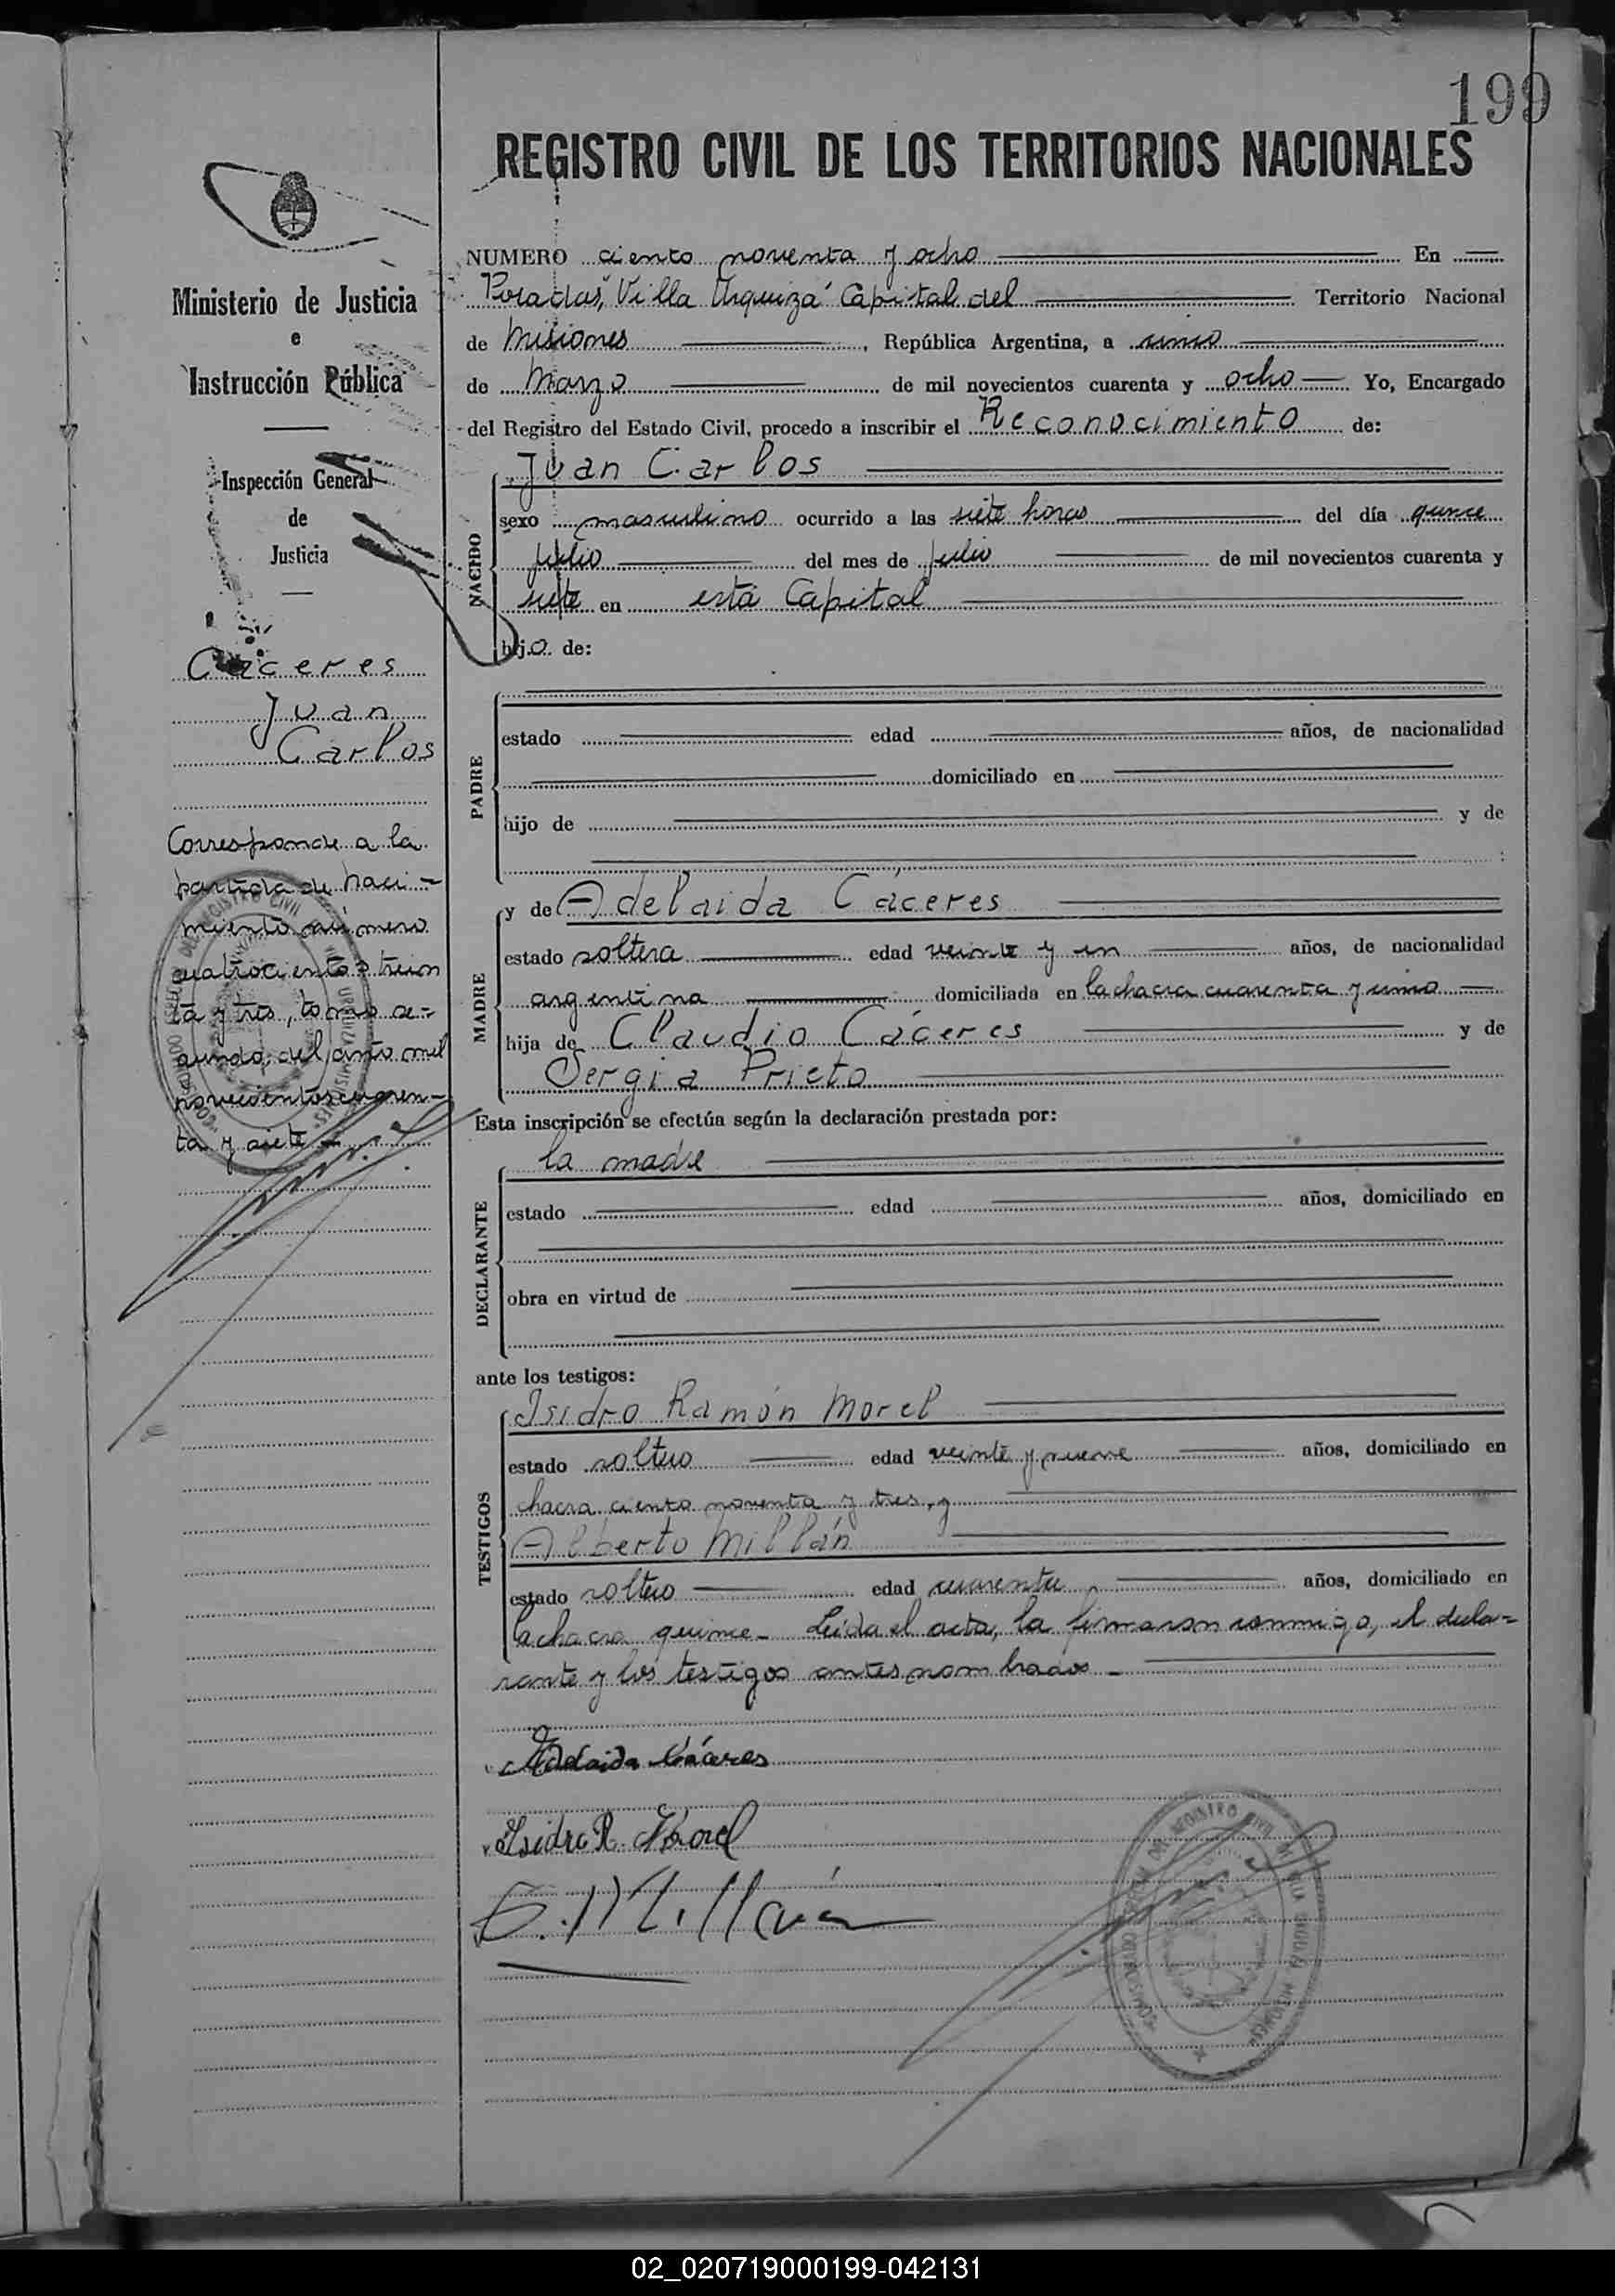 199
REGISTRO CIVIL DE LOS TERRITORIOS NACIONALES
Ministerio de Justicia
e
Instrucción Pública
Inspección General
de
Justicia
Caceres
Juan
Carlos
Corresponde a la
partida de naci-
miento número
cuatrocientos trein
ta y tres, tomo se-
gundo, del año mil
novecientos cuaren-
ta y siete
NUMERO ciento noventa y ocho En
Posadas, "Villa Urquiza" Capital del Territorio Nacional
de Misiones, República Argentina, a uno
de Marzo de mil novecientos cuarenta y ocho Yo, Encargado
del Registro del Estado Civil, procedo a inscribir el Reconocimiento de:
NACIDO
Juan Carlos
sexo masculino ocurrido a las siete horas del día quince
julio del mes de julio de mil novecientos cuarenta y
siete en esta Capital
hijo de:
PADRE
estado edad años, de nacionalidad
domiciliado en
hijo de y de
MADRE
y de Adelaida Cáceres
estado soltera edad veinte y un años, de nacionalidad
argentina domiciliada en la chacra cuarenta y uno
hija de Claudio Cáceres y de
Sergia Prieto
Esta inscripción se efectúa según la declaración prestada por:
DECLARANTE
la madre
estado edad años, domiciliado en
obra en virtud de
ante los testigos:
TESTIGOS
Isidro Ramón Morel
estado soltero edad veinte y nueve años, domiciliado en
chacra ciento noventa y tres, y
Alberto Millán
estado soltero edad cuarenta años, domiciliado en
la chacra quince.- Leida el acta, la firmaron conmigo, el decla=
rante y los testigos antes nombrados.-
Adelaida Cáceres
Isidro R. Morel
Millán
02_020719000199-042131